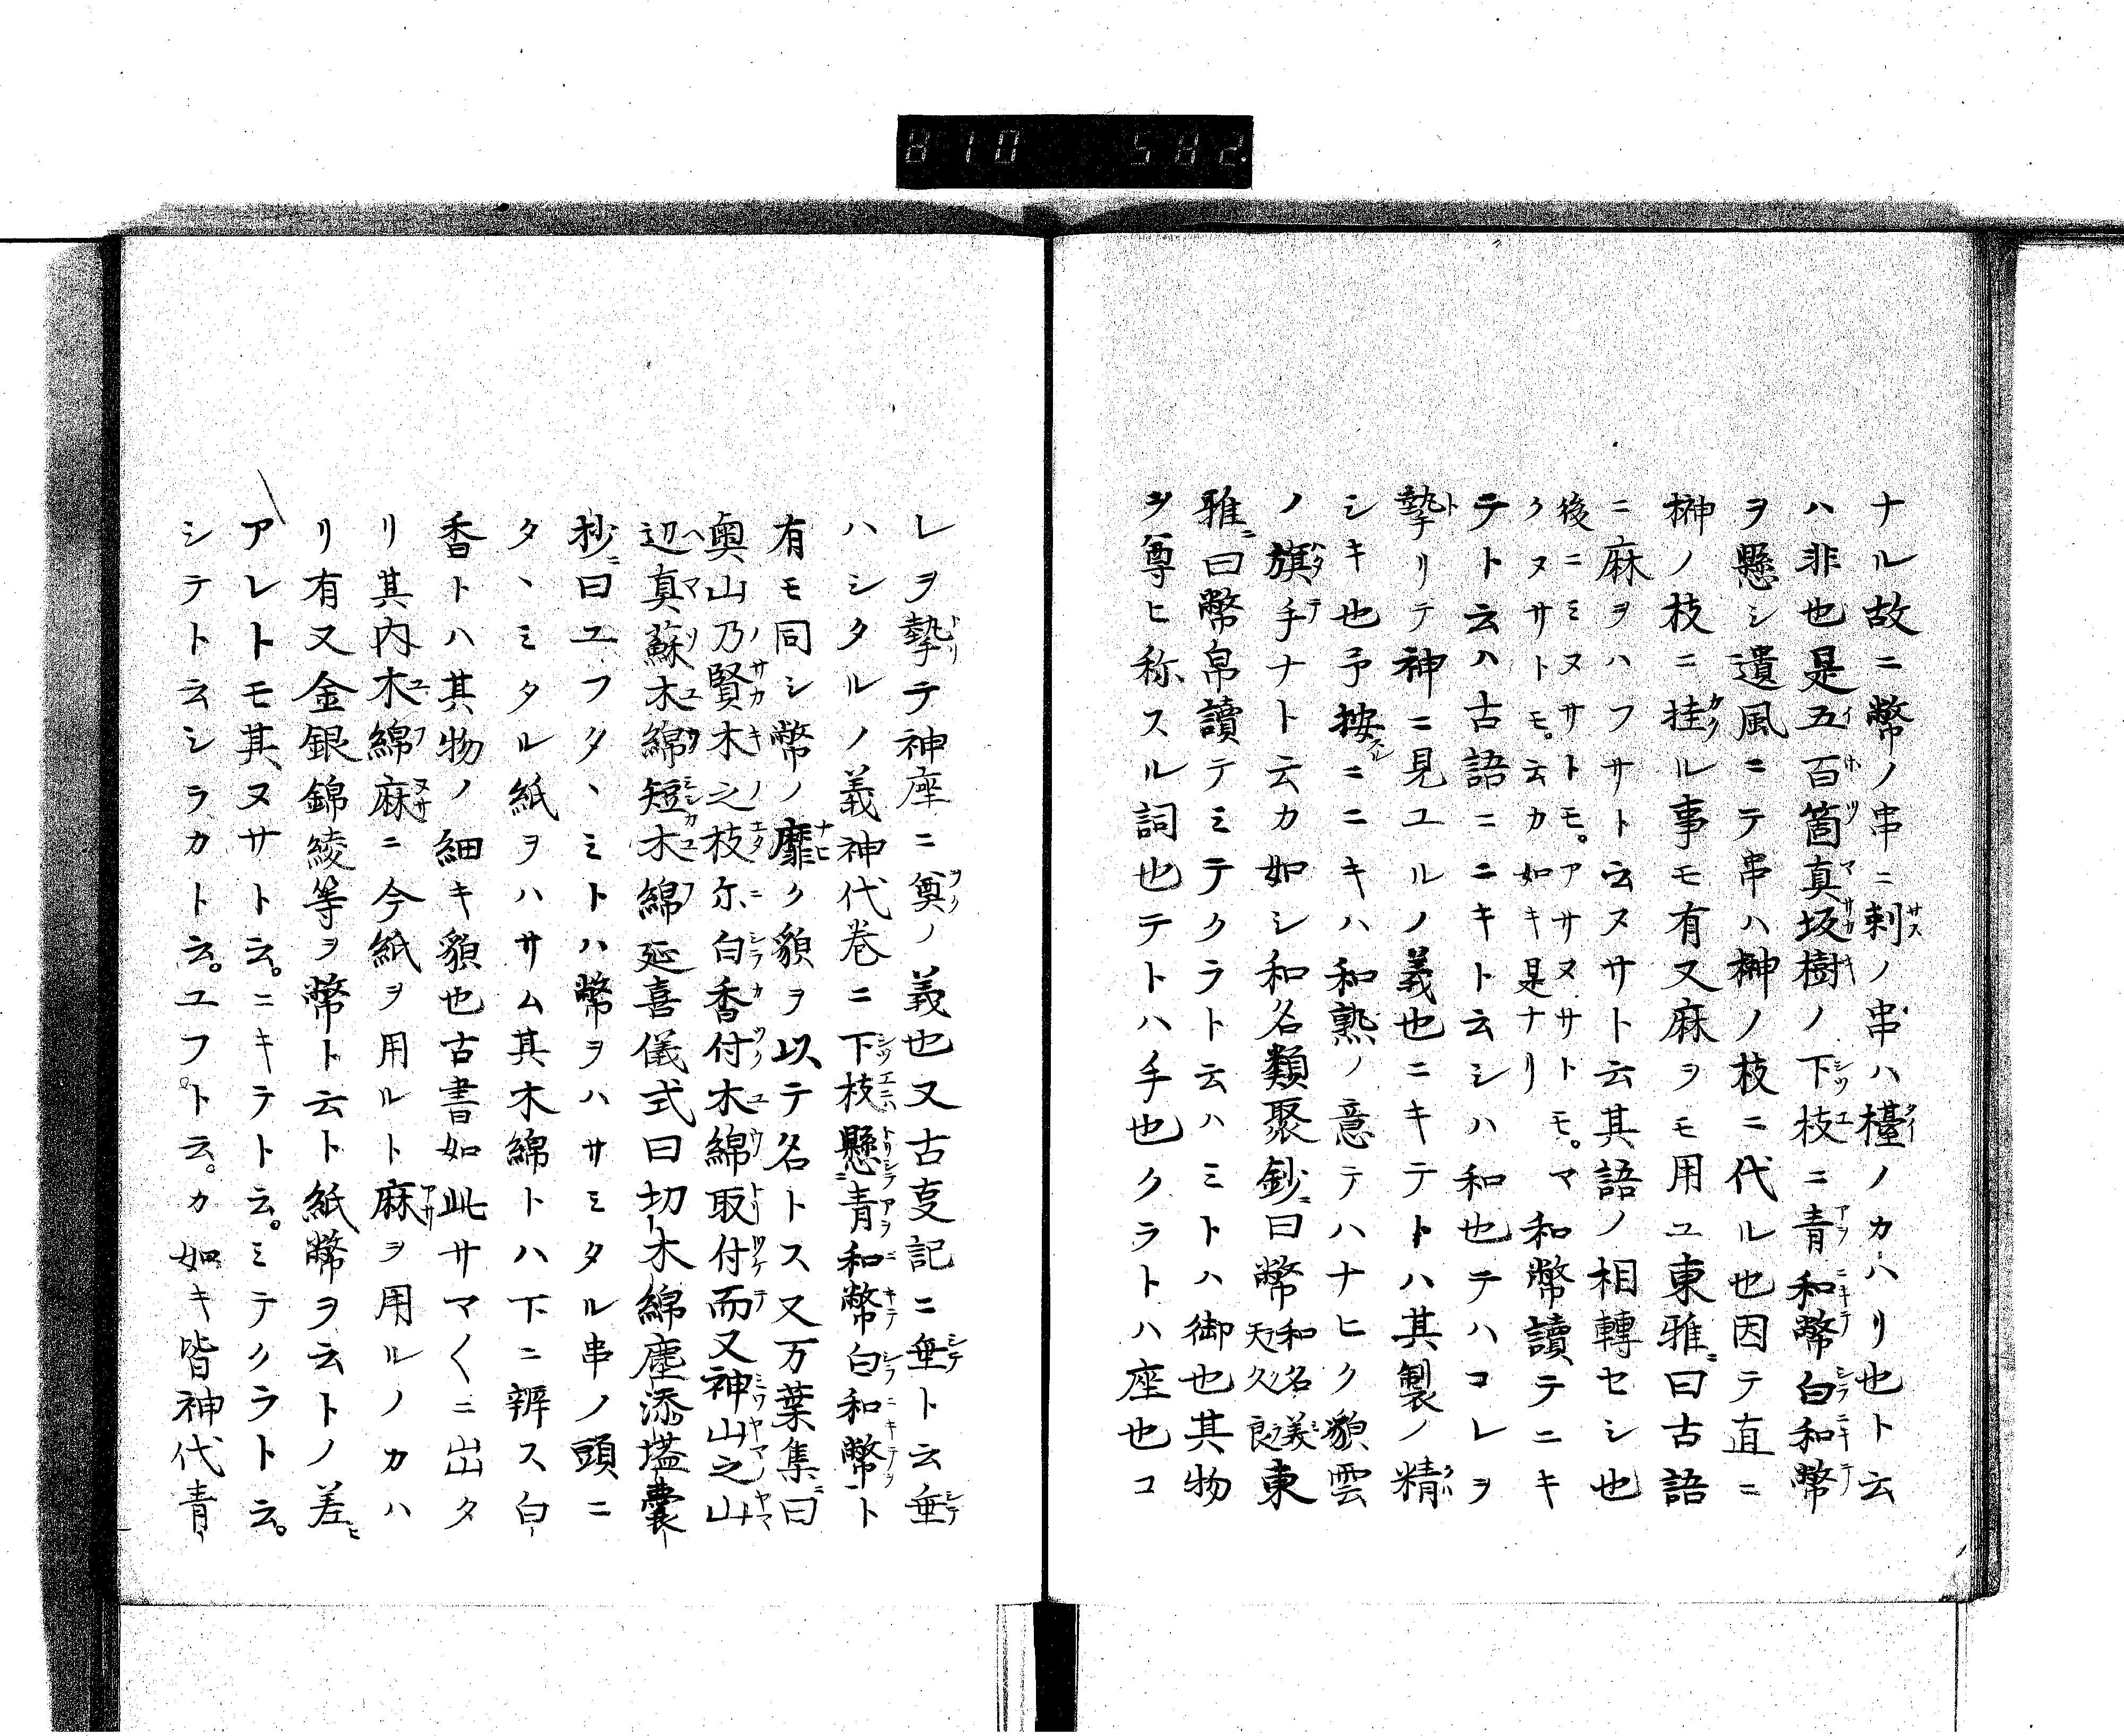 ナル故ニ幣ノ串ニ刺ノ串ハ橿ノカハリ也ト云
ハ非也是五百箇真坂樹ノ下枝ニ青和幣白和幣
ヲ懸シ遺風ニテ串ハ榊ノ枝ニ代ル也因テ直ニ
榊ノ枝ニ挂ル事モ有又麻ヲモ用ユ東雅ニ曰古語
ニ麻ヲハフサト云ヌサト云其語ノ相轉セシ也
後ニミヌサトモ。アサヌサトモ。マ
クヌサトモ。云カ如キ是ナリ
和幣讀テニキ
テト云ハ古語ニニキト云シハ和也テハコレヲ
摯リテ神ニ見ユルノ義也ニキテトハ其製ノ精
シキ也予按ニニキハ和熟ノ意テハナヒク貌雲
ノ旗手ナト云カ如シ和名類聚鈔ニ曰幣和名美
天久良東
雅ニ曰幣帛讀テミテクラト云ハミトハ御也其物
ヲ尊ヒ称スル詞也テトハ手也クラトハ座也コ
レヲ摯テ神座ニ奠ノ義也又古㕝記ニ垂ト云垂
ハシタルノ義神代巻ニ下枝懸青和幣白和幣ト
有モ同シ幣ノ靡ク貌ヲ以テ名トス又万葉集ニ曰
奥山乃賢木之枝尓白香付木綿取付而又神山之山
辺真蘇木綿短木綿延喜儀式曰切木綿塵添壒囊
抄ニ曰ユフタヽミトハ幣ヲハサミタル串ノ頭ニ
タヽミタル紙ヲハサム其木綿トハ下ニ辨ス白
香トハ其物ノ細キ貌也古書如此サマ〱ニ出タ
リ其内木綿麻ニ今紙ヲ用ルト麻ヲ用ルノカハ
リ有又金銀錦綾等ヲ幣ト云ト紙幣ヲ云トノ差
アレトモ其ヌサト云。ニキテト云。ミテクラト云。
シテト云シラカト云。ユフト云。カ如キ皆神代青